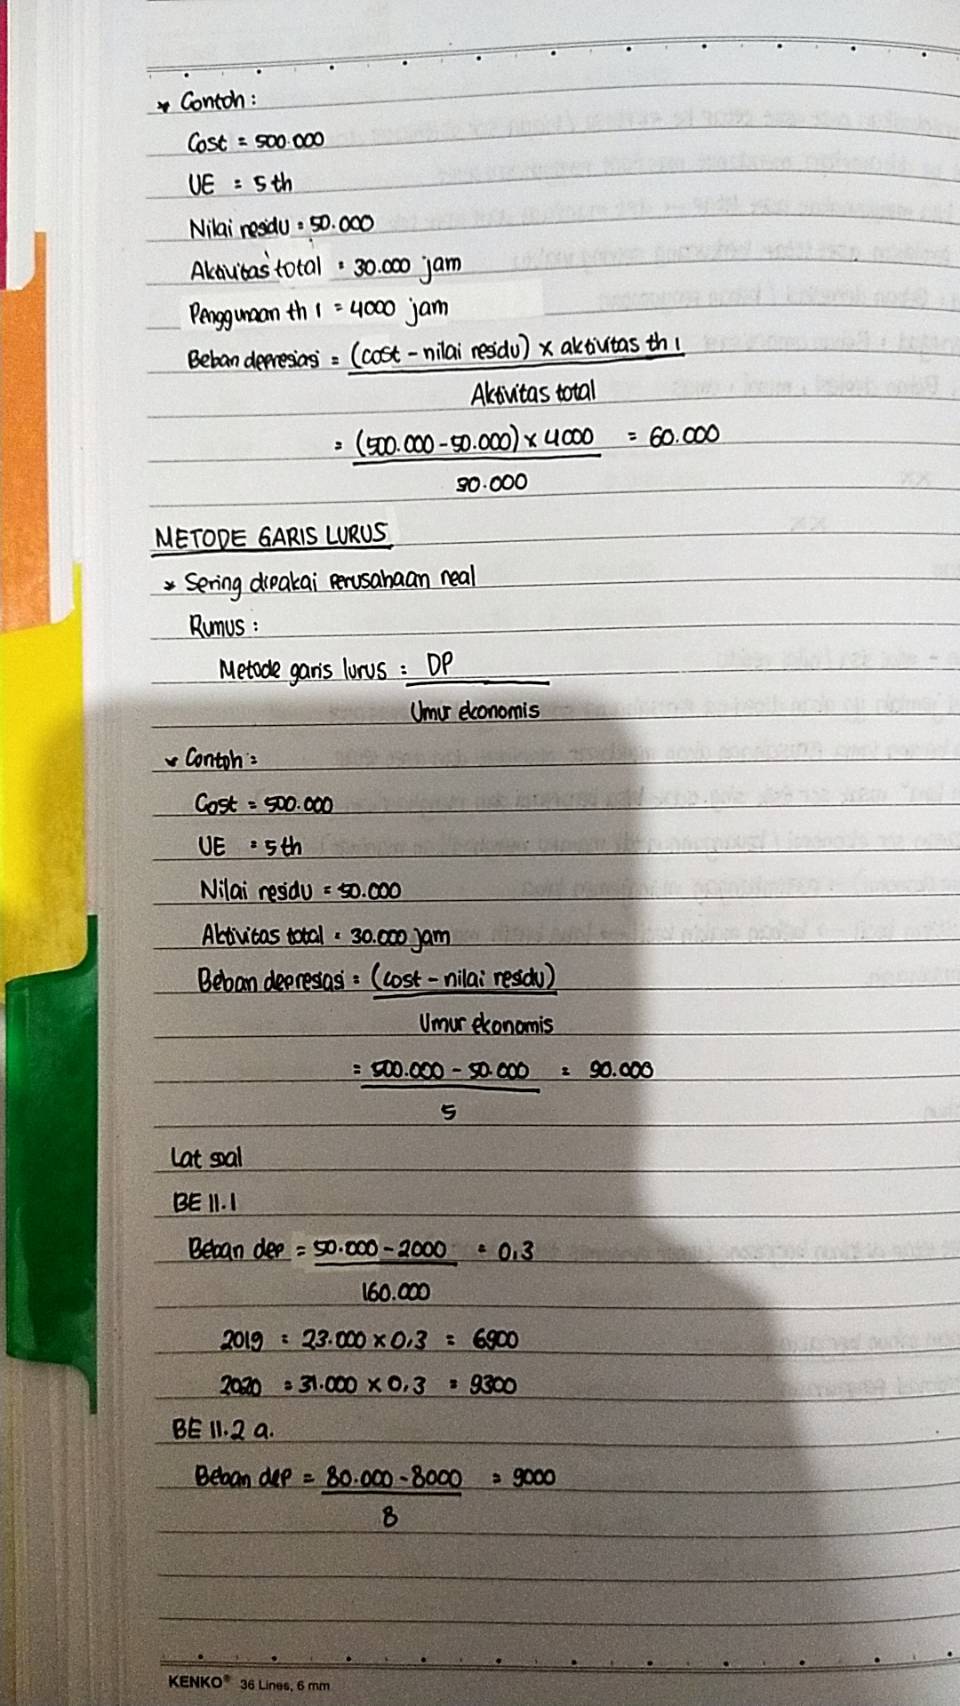 * Contoh :
Cost = 500.000
UE = 5 th
Nilai residu = 50.000
Aktivitas total = 30.000 jam
Penggunaan th 1 = 4000 jam
Beban depresiasi = (cost - nilai residu) x aktivitas th 1
Aktivitas total
= (500.000 - 50.000) x 4000 = 60.000
30.000
METODE GARIS LURUS
* Sering dipakai perusahaan real
Rumus :
Metode garis lurus = DP
Umur ekonomis
* Contoh =
Cost = 500.000
UE = 5 th
Nilai residu = 50.000
Aktivitas total = 30.000 jam
Beban depresiasi = (cost - nilai residu)
Umur ekonomis
= 500.000 - 50.000 = 90.000
5
Lat soal
BE 11.1
Beban dep = 50.000 - 2000 = 0,3
160.000
2019 = 23.000 x 0,3 = 6900
2020 = 31.000 x 0,3 = 9300
BE 11.2 a.
Beban dep = 80.000 - 8000 = 9000
8
KENKO® 36 Lines, 6 mm